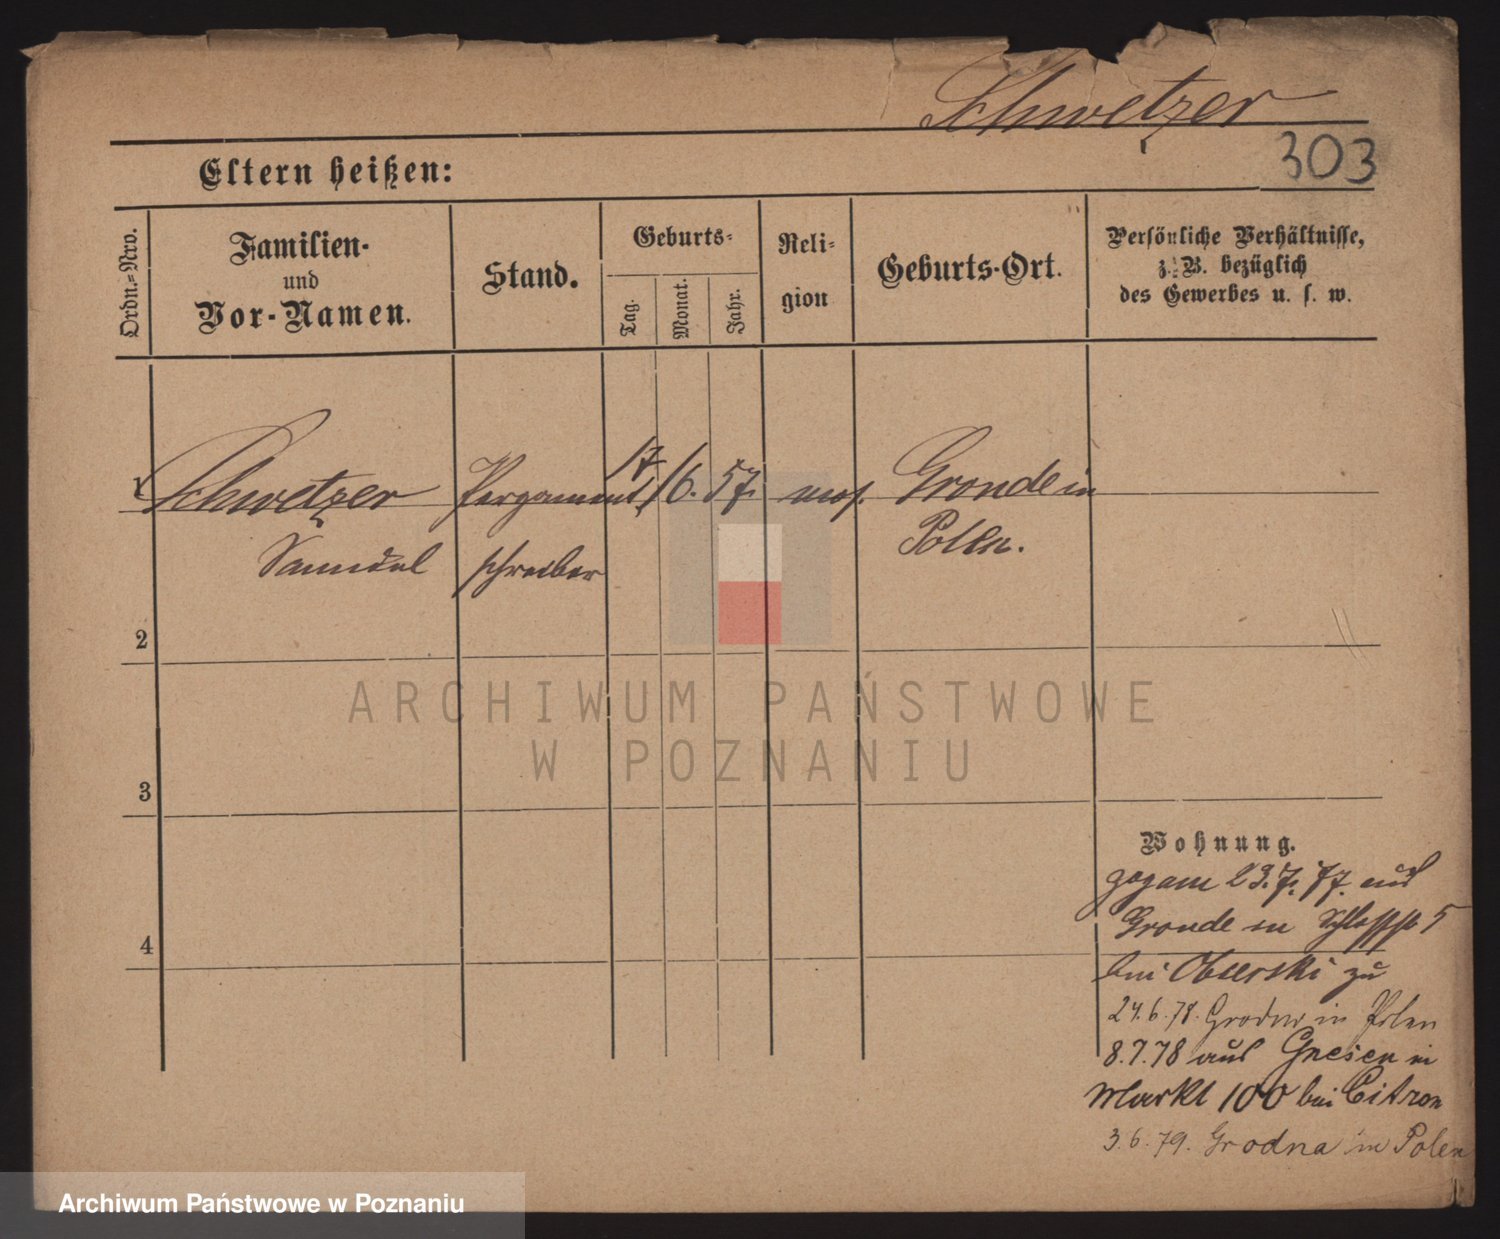 Schwetzer
303
Eltern heißen:
Ordn.=Nro.
Familien-
und
Vor-Namen.
Stand.
Geburts-
Tag.
Monat.
Jahr.
Reli-
gion
Geburts-Ort.
Persönliche Verhältnisse,
z. B. bezüglich
des Gewerbes u. s. w.
1 Schwetzer Pergament, 17/6. 57. mos. Gronde in
Samuel schreiber Polen.
2
3
4
Wohnung.
23. 7. 77. aus
Gronde in Schloßstr 5
bei zu
24.6.78. Grodno in Polen
8.7.78 aus Gnesen in
Markt 100 bei Citron
3.6.79. Grodna in Polen
ARCHIWUM PAŃSTWOWE
W POZNANIU
Archiwum Państwowe w Poznaniu